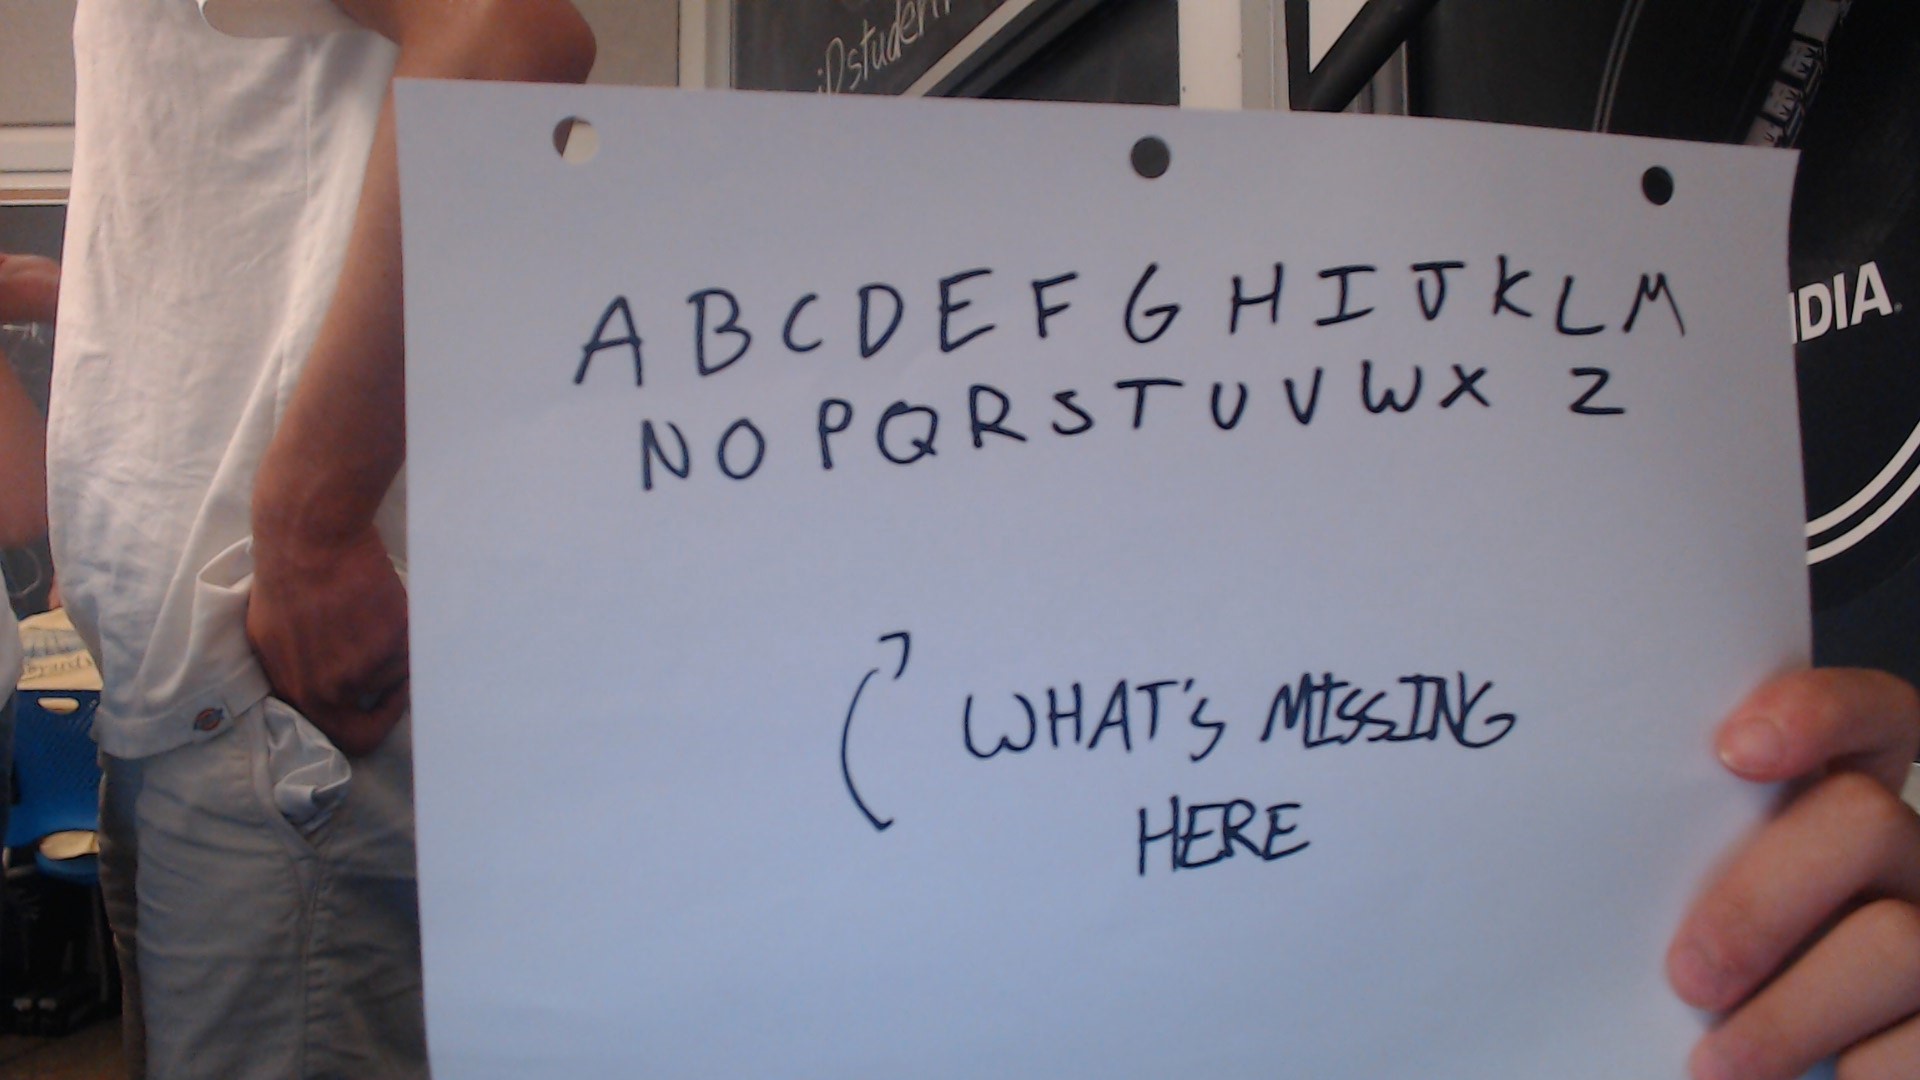 iDstuden
A B C D E F G H I J K L M
N O P Q R S T U V W X Z
IDIA
WHAT'S MISSING
HERE